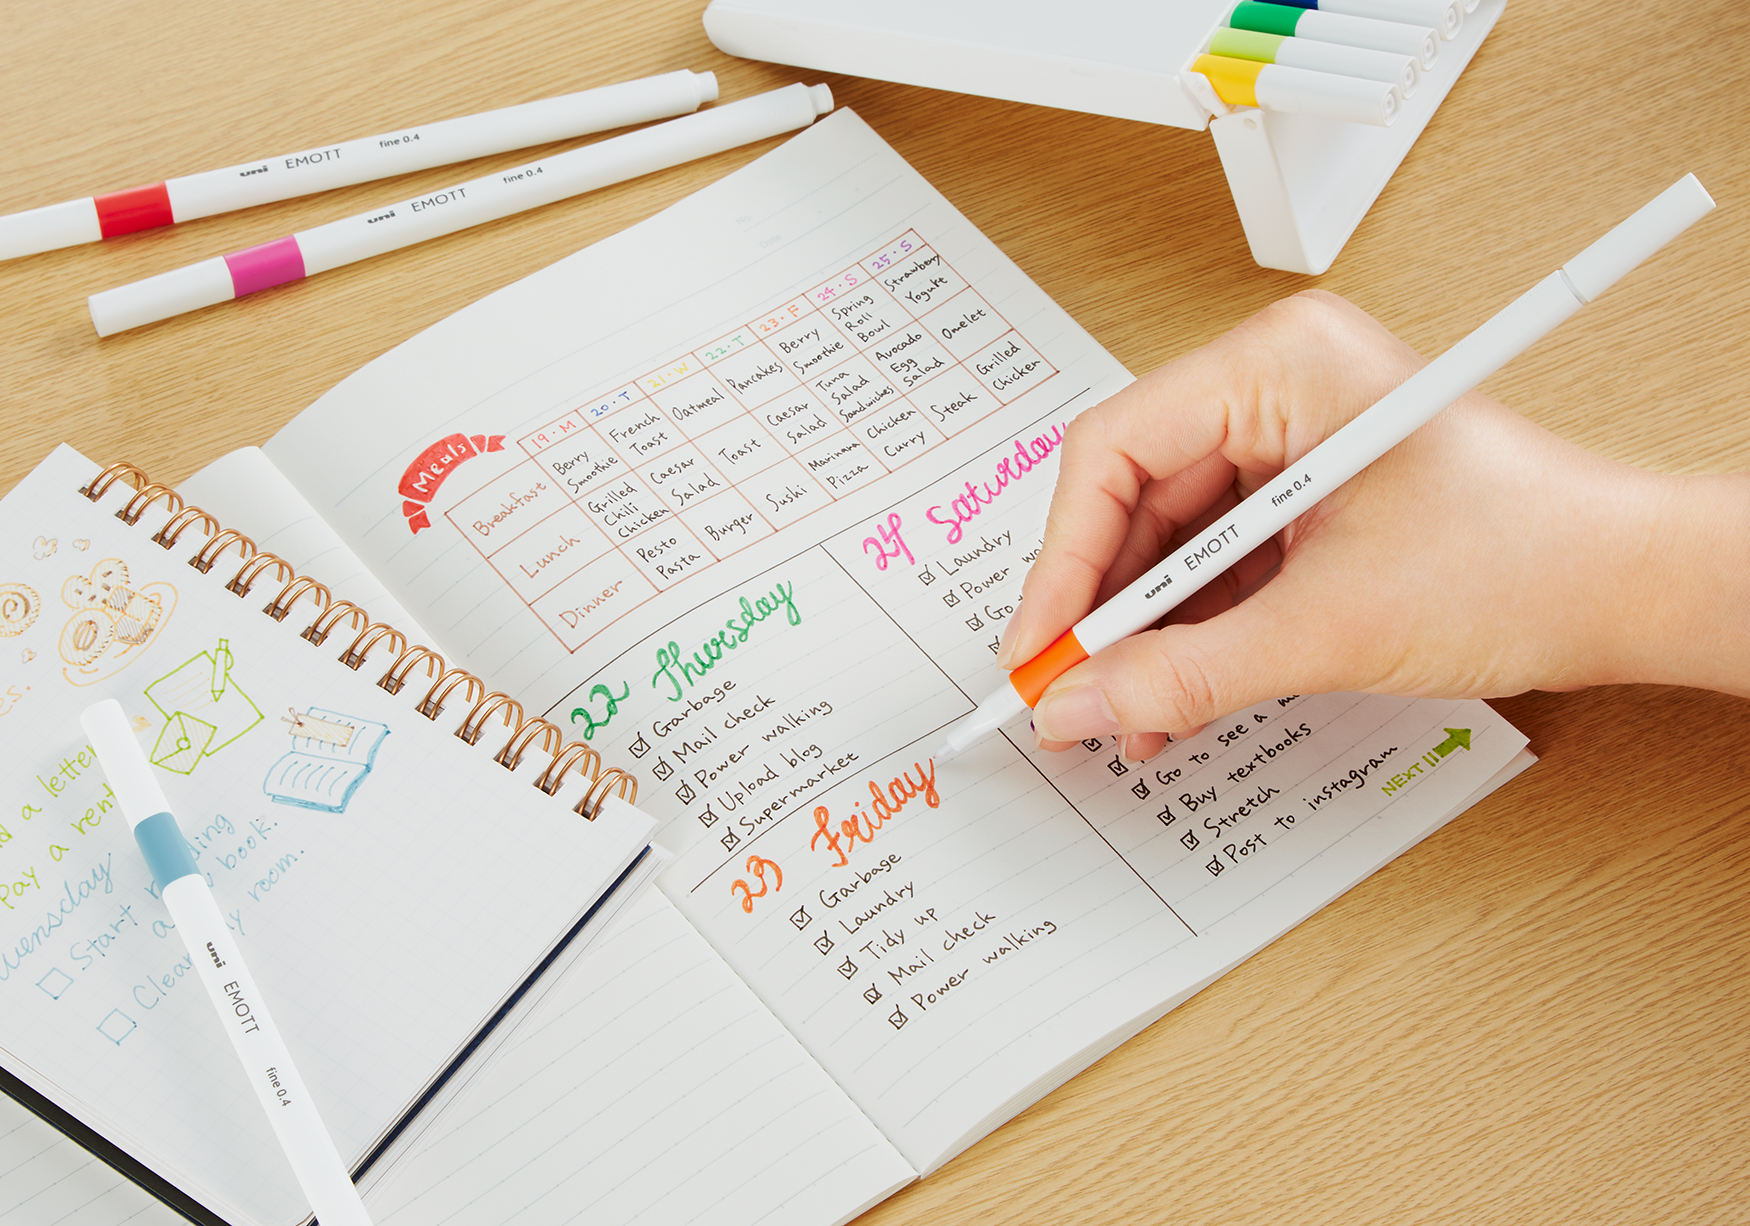 uni EMOTT fine 0.4
uni EMOTT fine 0.4
Meals
19・M 20・T 21・W 22・T 23・F 24・S 25・S
Breakfast
Berry
Smoothie
French
Toast
Oatmeal
Pancakes
Berry
Smoothie
Spring
Roll
Bowl
Strawberry
Yogurt
Lunch
Grilled
Chili
Chicken
Caesar
Salad
Toast
Caesar
Salad
Tuna
Salad
Sandwiches
Avocado
Egg
Salad
Omelet
Dinner
Pesto
Pasta
Burger
Sushi
Marinara
Pizza
Chicken
Curry
Steak
Grilled
Chicken
22 Thursday
Garbage
Mail check
Power walking
Upload blog
Supermarket
23 Friday
Garbage
Laundry
Tidy up
Mail check
Power walking
24 Saturday
Laundry
Power
Go
Go to see a
Buy textbooks
Stretch
Post to instagram
NEXT
uni EMOTT fine 0.4
a letter
Pay a rent
Start
a book.
room.
uni EMOTT fine 0.4